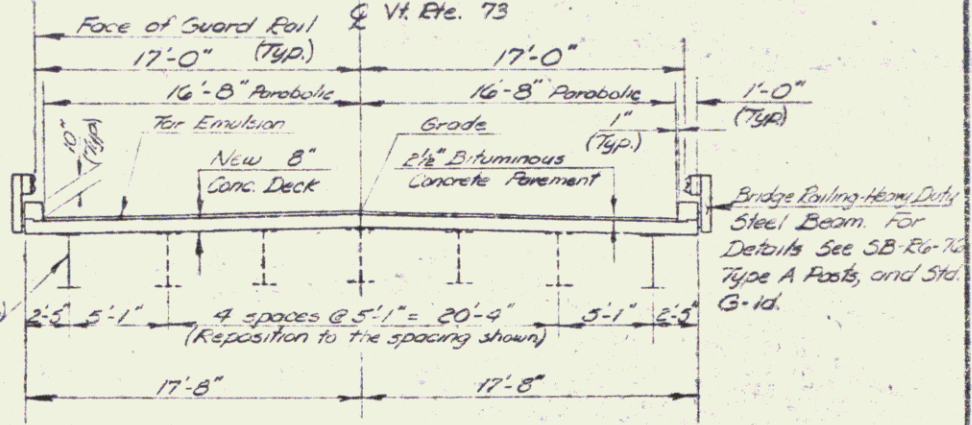 ℄ Vt. Rte. 73
Face of Guard Rail
(Typ.)
17'-0"
17'-0"
16'-8" Parabolic
16'-8" Parabolic
1'-0"
(Typ.)
10"
(Typ.)
Tar Emulsion
Grade
1"
(Typ.)
New 8"
Conc. Deck
2½" Bituminous
Concrete Pavement
Bridge Railing-Heavy Duty
Steel Beam. For
Details See
Type A Posts, and Std.
G-1d.
2'-5"
5'-1"
4 spaces @ 5'-1" = 20'-4"
5'-1"
2'-5"
(Reposition to the spacing shown)
17'-8"
17'-8"